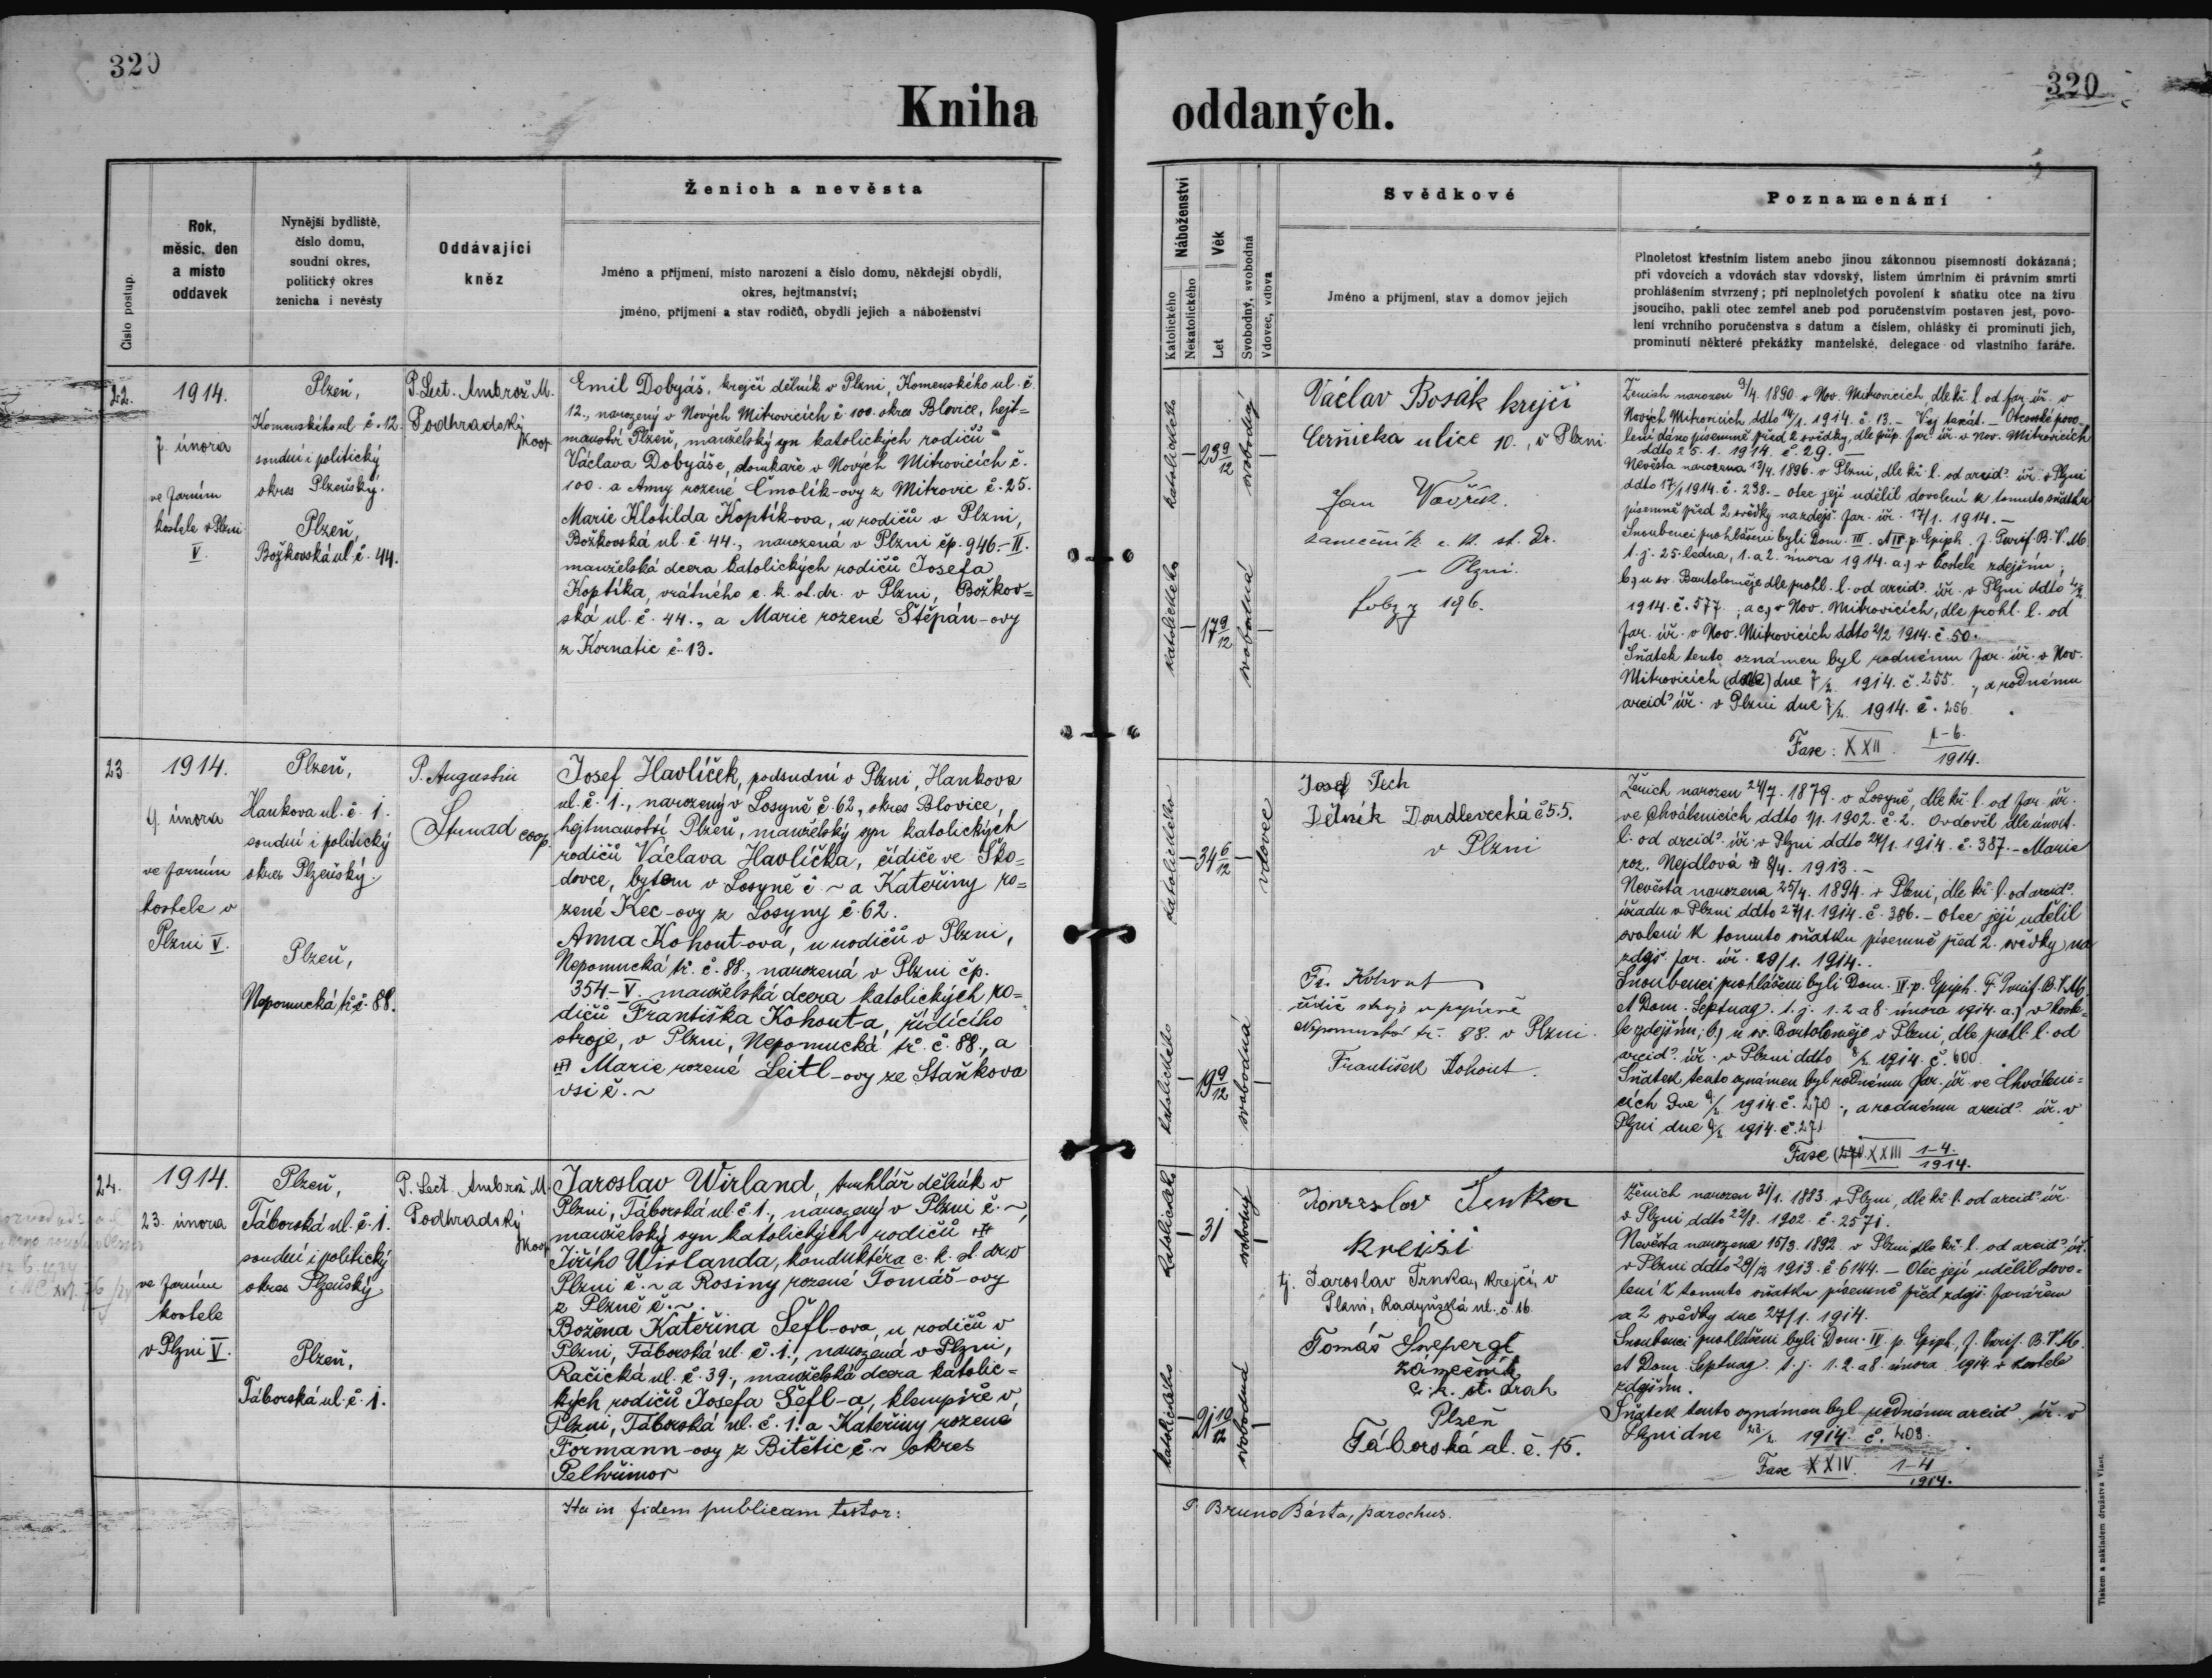 320
320
Kniha
oddaných.
Číslo postup.
Rok,
měsíc, den
a místo
oddavek
Nynější bydliště,
číslo domu,
soudní okres,
politický okres
ženicha i nevěsty
Oddávající
kněz
Ženich a nevěsta
Jméno a příjmení, místo narození a číslo domu, někdejší obydlí,
okres, hejtmanství;
jméno, příjmení a stav rodičů, obydlí jejich a náboženství
Náboženství
Katolického
Nekatolického
Věk
Let
Svobodný, svobodná
Vdovec, vdova
Svědkové
Jméno a příjmení, stav a domov jejich
Poznamenání
Plnoletost křestním listem anebo jinou zákonnou písemností dokázaná;
při vdovcích a vdovách stav vdovský, listem úmrlním či právním smrti
prohlášením stvrzený; při neplnoletých povolení k sňatku otce na živu
jsoucího, pakli otec zemřel aneb pod poručenstvím postaven jest, povo-
lení vrchního poručenstva s datum a číslem, ohlášky či prominutí jich,
prominutí některé překážky manželské, delegace od vlastního faráře.
22.
1914.
7. února
ve farním
kostele v Plzni
V.
Plzeň,
Komenského ul č. 12.
soudní i politický
okres Plzeňský.
Plzeň,
Božkovská ul. č. 44.
P. Lect. Ambrož M.
Podhradský
koop
Emil Dobyáš, krejčí dělník v Plzni, Komenského ul. č.
12., narozený v Nových Mitrovicích č 100. okres Blovice, hejt=
manství Plzeň, manželský syn katolických rodičů
Václava Dobyáše, domkaře v Nových Mitrovicích č.
100. a Anny rozené Čmolík-ovy z Mitrovic č. 25.
Marie Klotilda Koptík-ova, u rodičů v Plzni,
Božkovská ul. č. 44., narozená v Plzni čp. 946.-II.
manželská dcera katolických rodičů Josefa
Koptíka, vrátného c. k. st. dr. v Plzni, Božkov=
ská ul. č. 44., a Marie rozené Štěpán-ovy
z Kornatic č. 13.
katolického
23 9/12
svobodný
katolického
17 9/12
svobodná
Václav Bosák krejčí
Cerňicka ulice 10., v Plzni
Jan Vavřík
zamečník c. k. st. dr.
v Plzni.
196.
Ženich narozen 9/4. 1890. v Nov. Mitrovicích, dle kř. l. od far. úř. v
Nových Mitrovicích ddto 14/1. 1914. č. 13. - Otcovské povo-
lení dáno písemně před 2 svědky, dle příp. far. úř. v Nov. Mitrovicích
ddto 25. 1. 1914. č. 29. -
Nevěsta narozena 13/4. 1896. v Plzni, dle kř. l. od arcid. úř. v Plzni
ddto 17/1 1914. č. 238. - otec její udělil dovolení k tomuto sňatku
písemně před 2 svědky na zdejš. far. úř. 17/1. 1914. -
Snoubenci prohlášeni byli Dom. III. et IV p. Epiph. f. Purif. B. V. M.
t. j. 25. ledna, 1. a 2. února 1914. a.) v kostele zdejším;
b.) u sv. Bartoloměje dle prohl. l. od arcid. úř. v Plzni ddto 4/2
1914. č. 577.; a c.) v Nov. Mitrovicích, dle prohl. l. od
far. úř. v Nov. Mitrovicích ddto 2/2 1914. č. 50.
Sňatek tento oznámen byl rodnému far. úř. v Nov.
Mitrovicích dne 7/2. 1914. č. 255., a rodnému
arcid. úř. v Plzni dne 7/2. 1914. č. 256.
Fasc: XXII. 1-6. 1914.
23
1914.
9. února
ve farním
kostele v
Plzni V.
Plzeň,
Hankova ul. č. 1.
soudní i politický
okres Plzeňský.
Plzeň,
Nepomucká tř. č. 88.
P. Augustin
Strnad coop.
Josef Havlíček, podsudní v Plzni, Hankova
ul. č. 1., narozený v Losyně č. 62., okres Blovice,
hejtmanství Plzeň, manželský syn katolických
rodičů Václava Havlíčka, řidiče ve Ško=
dovce, bytem v Losyně č ~ a Kateřiny ro=
zené Kec-ovy z Losyny č. 62.
Anna Kohout-ová, u rodičů v Plzni,
Nepomucká tř. č. 88., narozená v Plzni čp.
354.-V. manželská dcera katolických ro=
dičů Františka Kohout-a, řídícího
stroje, v Plzni, Nepomucká tř. č. 88., a
Marie rozené Leitl-ovy ze Staňkova
vsi č. ~
katolického
34 6/12
vdovec
katolického
19 9/12
svobodná
Josef Pech
Dělník Doudlevecká č 55.
v Plzni
Fr. Kohout
řidič stroje v papírně
Nepomucká tř. 88. v Plzni.
František Kohout.
Ženich narozen 24/7. 1879. v Losyně, dle kř. l. od far. úř.
ve Chválenicích ddto 1/1. 1902. č. 2. Ovdověl dle úmrt.
l. od arcid. úř. v Plzni ddto 24/1. 1914. č. 387. - Marie
roz. Nejdlová 8/4. 1913. -
Nevěsta narozena 25/4. 1894. v Plzni, dle kř. l. od arcid.
úřadu v Plzni ddto 27/1. 1914. č. 386. - Otec její udělil
svolení k tomuto sňatku písemně před 2. svědky na
zdejš. far. úř. 29/1. 1914.
Snoubenci prohlášeni byli Dom. IV. p. Epiph. F. Purif. B. V. M.
et Dom. Septuag. t. j. 1. 2 a 8 února 1914. a.) v koste=
le zdejším; b.) u sv. Bartoloměje v Plzni, dle prohl. l. od
arcid. úř. v Plzni ddto 8/2. 1914. č. 600.
Sňatek tento oznámen byl rodnému far. úř. ve Chváleni=
cích dne 9/2. 1914. č. 270., a rodnému arcid. úř. v
Plzni dne 9/2. 1914. č. 271
Fasc XXIII 1-4. 1914.
24.
1914.
23. února
ve farním
kostele
v Plzni V.
Plzeň,
Táborská ul. č. 1.
soudní i politický
okres Plzeňský
Plzeň,
Táborská ul. č. 1.
P. Lect. Ambrož M.
Podhradský
koop
Jaroslav Wirland, truhlář dělník v
Plzni, Táborská ul. č. 1., narozený v Plzni č. ~,
manželský syn katolických rodičů
Jiřího Wirlanda, konduktéra c. k. st. dr. v
Plzni č. ~ a Rosiny rozené Tomáš-ovy
z Plzně č. ~.
Božena Kateřina Šefl-ova, u rodičů v
Plzni, Táborská ul. č. 1., narozená v Plzni,
Račická ul. č. 39., manželská dcera katolic=
kých rodičů Josefa Šefl-a, klempíře v
Plzni, Táborská ul. č. 1. a Kateřiny rozené
Formann-ovy z Bitětic č. ~ okres
Pelhřimov
katolického
31
svobodný
katolického
21 10/12
svobodná
Jaroslav Trnka
Krejčí
tj. Jaroslav Trnka, krejčí, v
Plzni, Radyňská ul. č. 16.
Tomáš Šnepergl
Zámečník
c. k. st. drah
Plzeň
Táborská ul. č. 15.
Ženich narozen 31/1. 1883. v Plzni, dle kř. l. od arcid. úř.
v Plzni ddto 22/8. 1902. č. 2571.
Nevěsta narozena 15/3. 1892. v Plzni dle kř. l. od arcid. úř.
v Plzni ddto 29/12 1913. č. 6144. - Otec její udělil dovo=
lení k tomuto sňatku písemně před zdejš. farářem
a 2 svědky dne 27/1. 1914.
Snoubenci prohlášeni byli Dom. IV. p. Epiph. f. Purif. B. V. M.
et Dom. Septuag. t. j. 1. 2. a 8. února 1914. v kostele
zdejším.
Sňatek tento oznámen byl rodnému arcid. úř. v
Plzni dne 23/2. 1914. č. 408.
Fasc XXIV. 1-4 1914.
Ita in fidem publicam testor:
P. Bruno Bárta, parochus.
Tiskem a nákladem družstva Vlast.